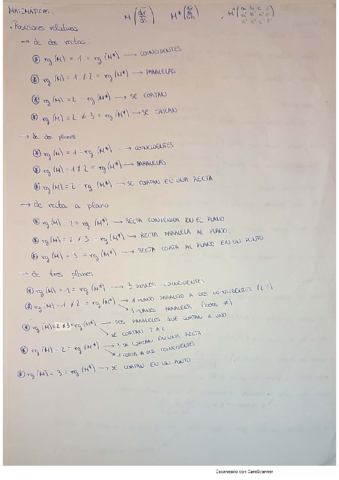 MATEMÁTICAS.
• Posiciones relativas
→ de dos rectas.
rg (M) = 1 = rg (M*) → COINCIDENTES
rg (M) = 1 ≠ 2 = rg (M*) → PARALELAS
rg (M) = 2 = rg (M*) → SE CORTAN
rg (M) = 2 ≠ 3 = rg (M*) → SE CRUZAN
→ de dos planos
rg (M) = 1 = rg (M*) → COINCIDENTES
rg (M) = 1 ≠ 2 = rg (M*) → PARALELAS
rg (M) = 2 = rg (M*) → SE CORTAN EN UNA RECTA
→ de recta a plano
rg (M) = 2 = rg (M*) → RECTA CONTENIDA EN EL PLANO
rg (M) = 2 ≠ 3 = rg (M*) → RECTA PARALELA AL PLANO
rg (M) = 3 = rg (M*) → RECTA CORTA AL PLANO EN UN PUNTO
→ de tres planos
rg (M) = 1 = rg (M*) → 3 PLANOS COINCIDENTES
rg (M) = 1 ≠ 2 = rg (M*) → 1 PLANO PARALELO A DOS COINCIDENTES
3 PLANOS PARALELOS
rg (M) = 2 ≠ 3 = rg (M*) → DOS PARALELOS QUE CORTAN A UNO
SE CORTAN 2 A 2
rg (M) = 2 = rg (M*) → 3 SE CORTAN EN UNA RECTA
1 CORTA A DOS COINCIDENTES
rg (M) = 3 = rg (M*) → SE CORTAN EN UN PUNTO
Escaneado con CamScanner